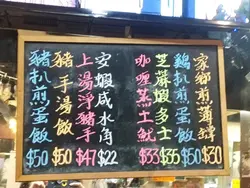 家鄉煎薄罉 $30
雞扒煎蛋飯 $50
芝麻蝦多士 $35
咖喱蒸土魷 $33
安蝦咸水角 $22
上湯淨豬手 $47
豬手湯飯 $50
豬扒煎蛋飯 $50